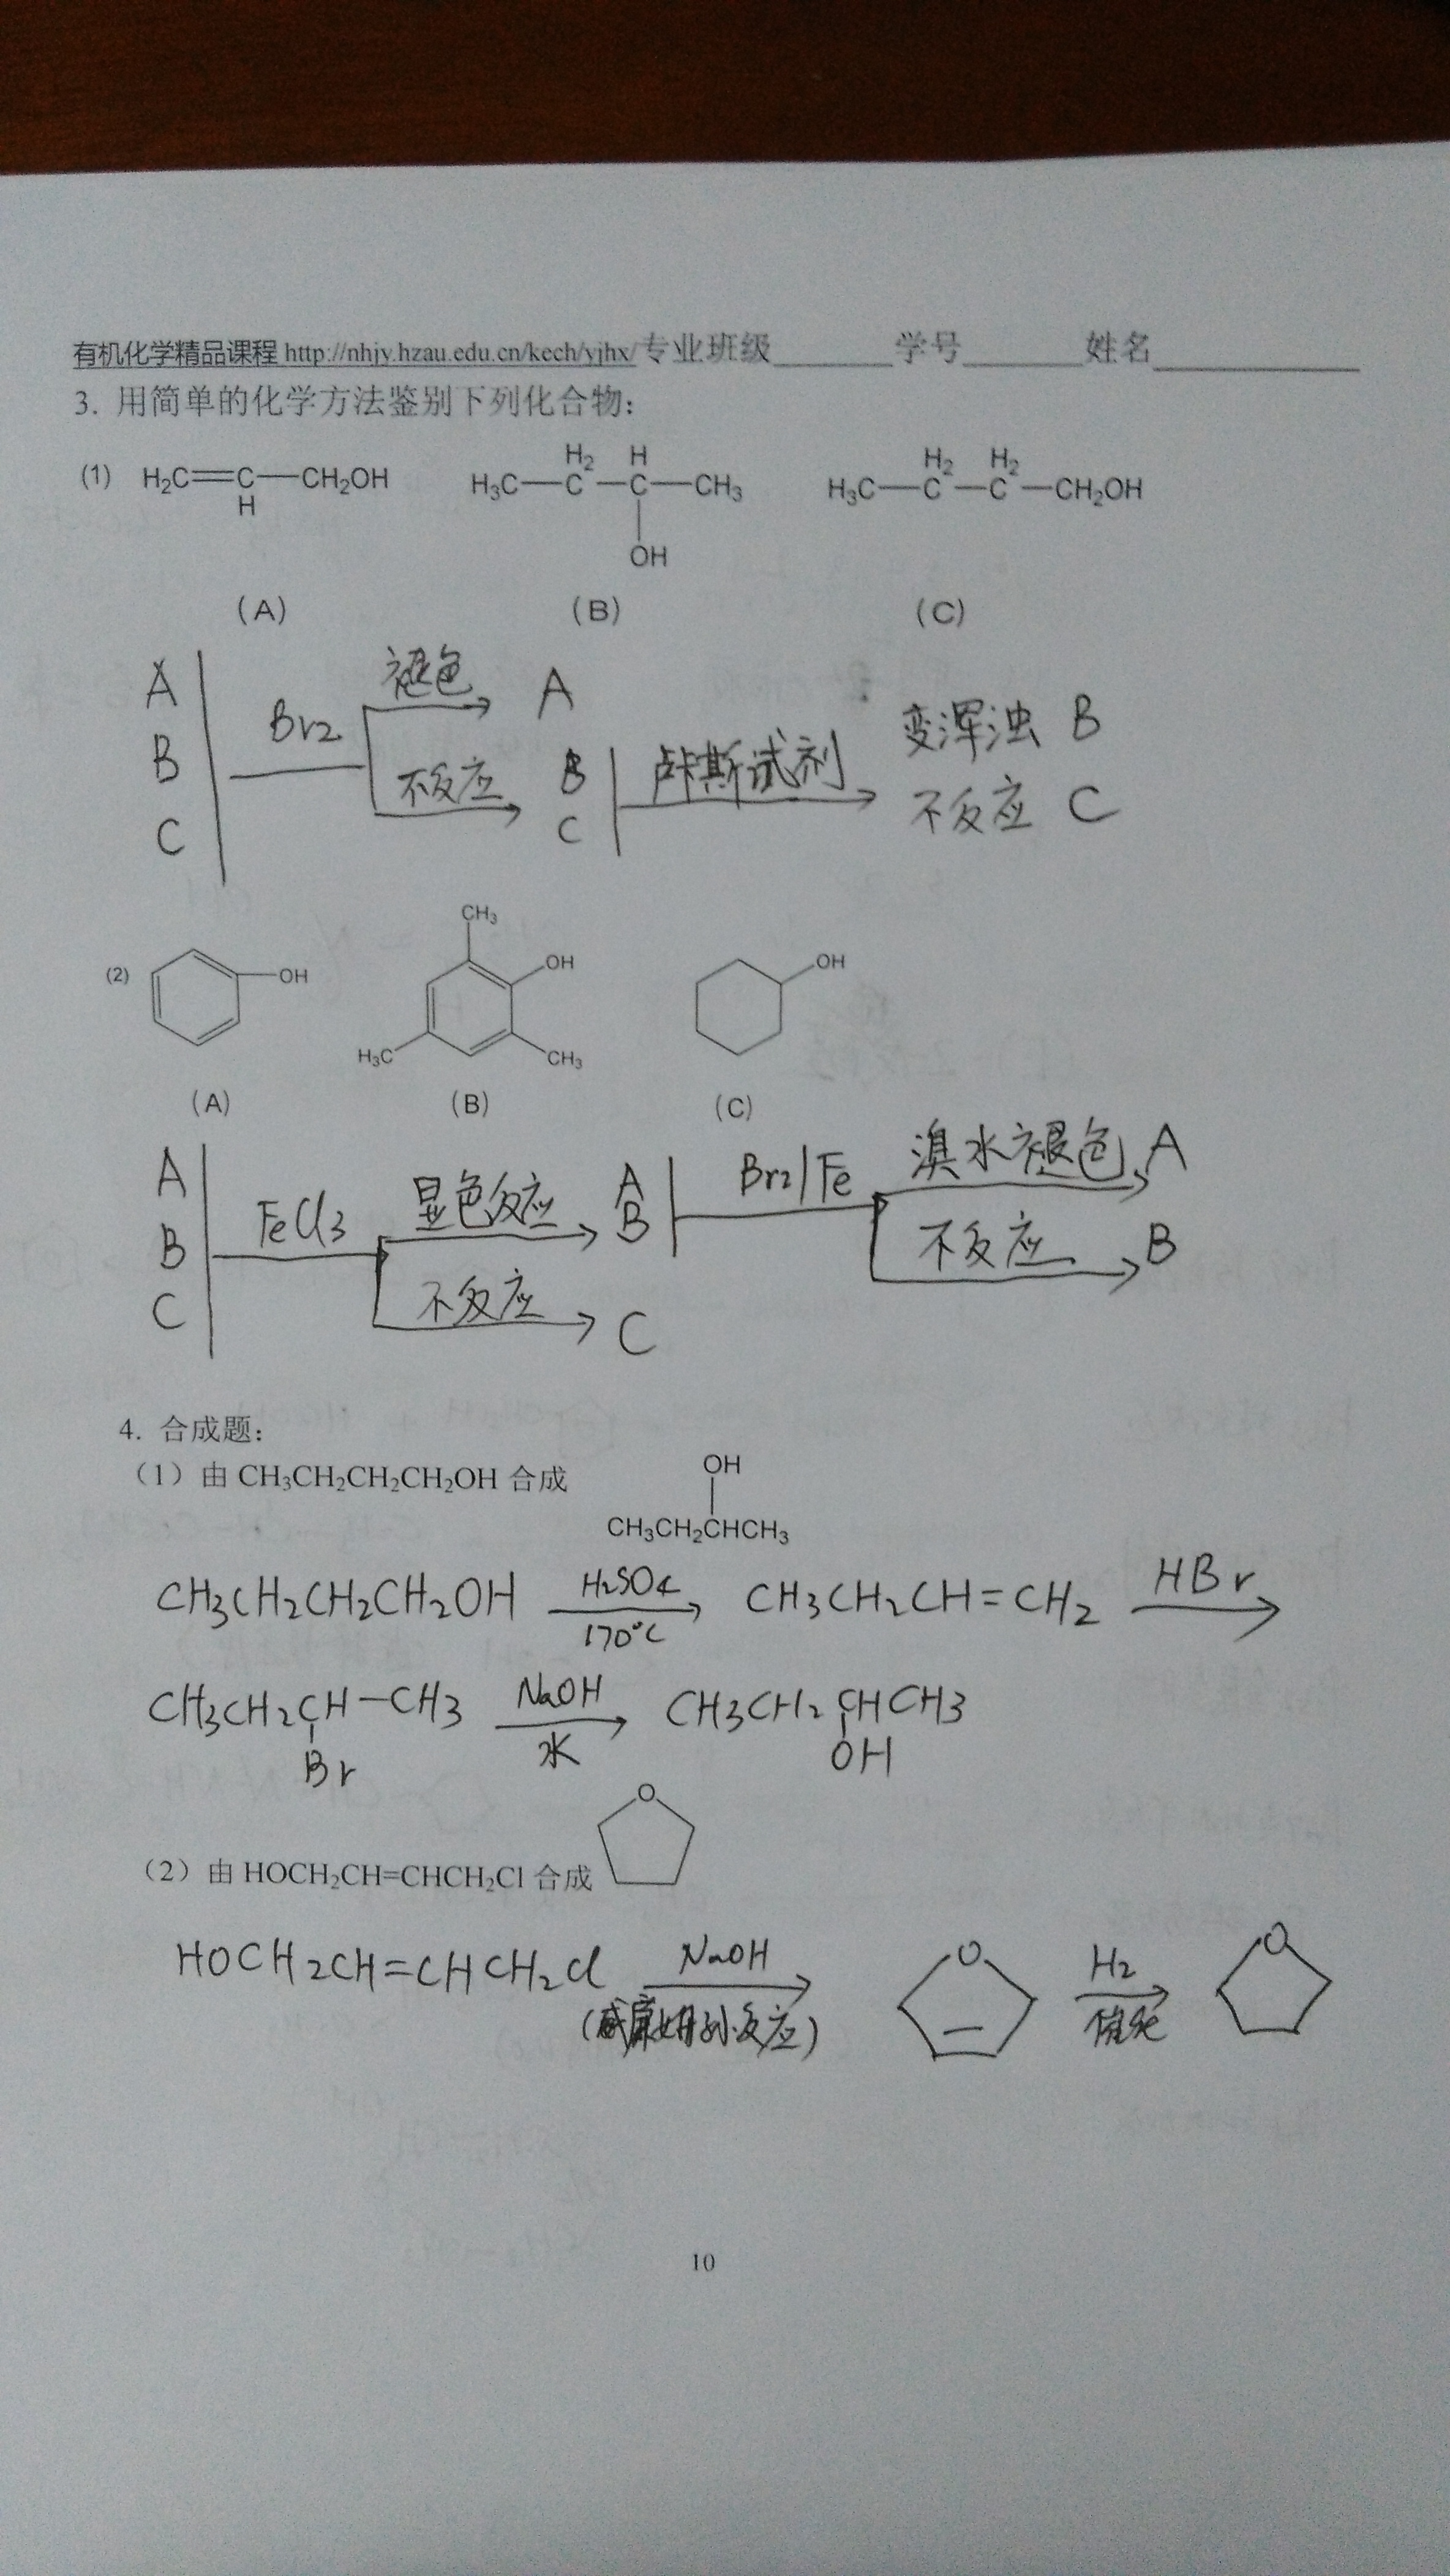 有机化学精品课程 http://nhjy.hzau.edu.cn/kech/yjhx/ 专业班级 学号 姓名
3. 用简单的化学方法鉴别下列化合物：
(1) H₂C=C—CH₂OH H₃C—C—C—CH₃ H₃C—C—C—CH₂OH
H H₂ H OH H₂ H₂
(A) (B) (C)
A B C Br₂ 褪色 A
不反应 B C 卢卡斯试剂 变浑浊 B
不反应 C
(2) OH CH₃ OH H₃C CH₃ OH
(A) (B) (C)
A B C FeCl₃ 显色反应 A B Br₂/Fe 溴水褪色 A
不反应 B
不反应 C
4. 合成题：
（1）由 CH₃CH₂CH₂CH₂OH 合成
OH
CH₃CH₂CHCH₃
CH₃CH₂CH₂CH₂OH H₂SO₄ 170°C CH₃CH₂CH=CH₂ HBr
CH₃CH₂CH—CH₃ Br NaOH 水 CH₃CH₂CHCH₃ OH
（2）由 HOCH₂CH=CHCH₂Cl 合成 O
HOCH₂CH=CHCH₂Cl NaOH O H₂ O
(威廉姆孙反应)
10